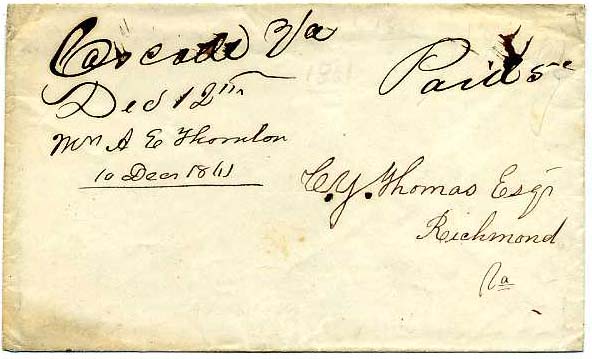 Cascade Va
Dec 12th
Paid 5c
Mrs A E Thornton
10 Decr 1861
C. Y. Thomas Esqr
Richmond
Va
1861